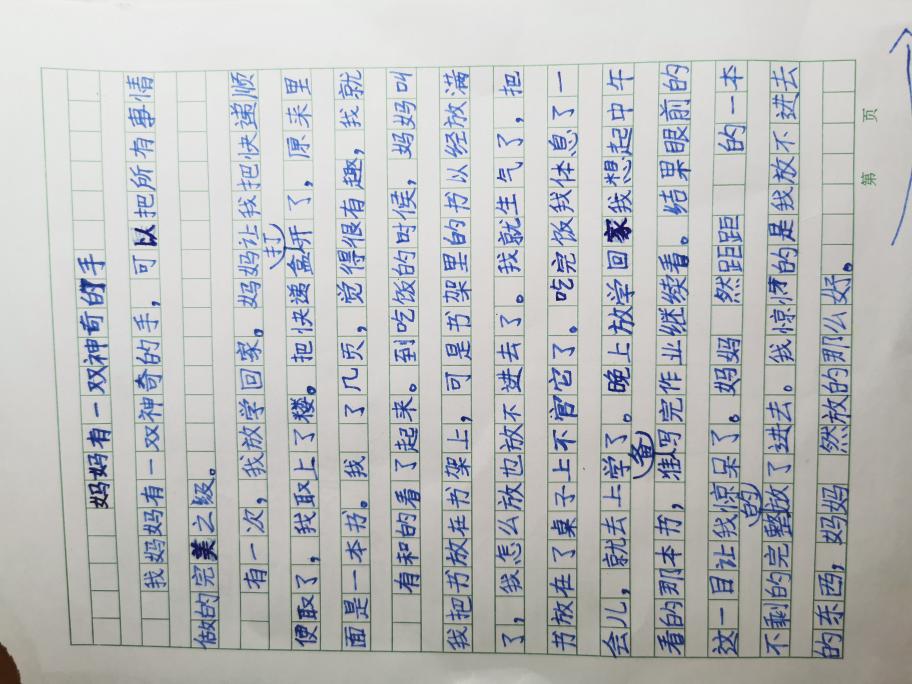 妈妈有一双神奇的手
我妈妈有一双神奇的手，可以把所有事情
做的完美之级。
有一次，我放学回家。妈妈让我把快递顺
便取了，我取上了楼。把快递盒打开了，原来里
面是一本书。我 了几页，觉得很有趣，我就
有和的看了起来。到吃饭的时候，妈妈叫
我把书放在书架上，可是书架里的书以经放满
了，我怎么放也放不进去了。我就生气了，把
书放在了桌子上不官它了。吃完饭我体息了一
会儿，就去上学了。晚上放学回家我想起中午
看的那本书，准备写完作业继续看。结果眼前的
这一目让我惊呆了。妈妈 然距距 的一本
不剩的完整的放了进去。我惊讶的是我放不进去
的东西，妈妈 然放的那么好。
第 页